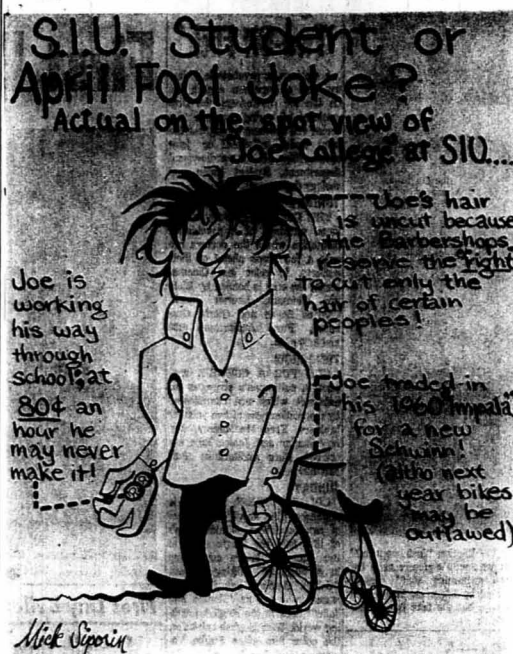 S.I.U. Student or
April Fool Joke?
Actual on the spot view of
"Joe College" at SIU....
Joe's hair
is uncut because
the Barbershops
reserve the right
to cut only the
hair of certain
peoples!
Joe is
working
his way
through
school, at
80¢ an
hour he
may never
make it!
Joe traded in
his 1960 Impala
for a new
Schwinn!
(altho next
year bikes
may be
outlawed)
Mick Siporin